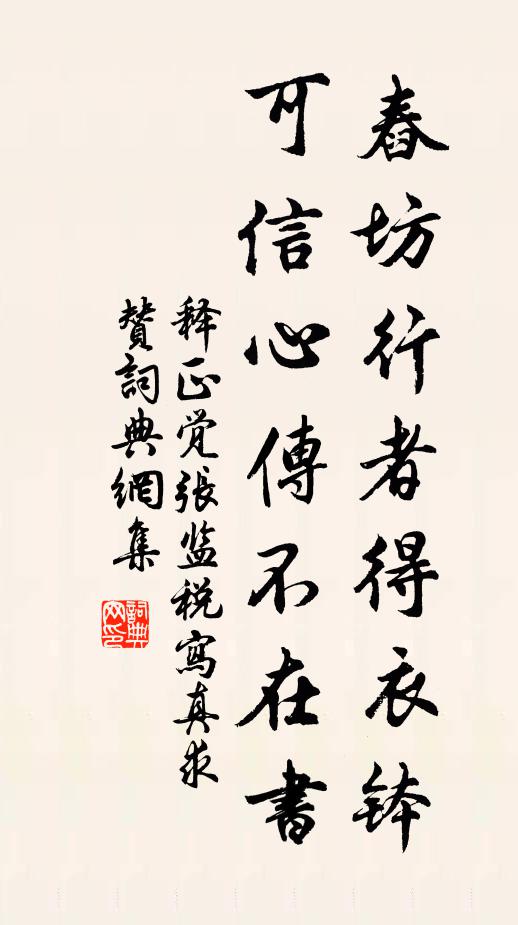 舂坊行者得衣鉢
可信心傳不在書
释正觉張监税寫真求
贊詞典網集
詞典
网印